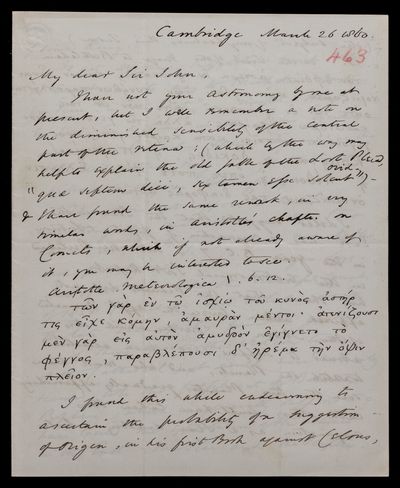 Cambridge March 26 1860.
463
My dear Sir John,
I have not your Astronomy by me at
present, but I well remember a note on
the diminished sensibility of the central
part of the retina: (which by the way may
help to explain the old fable of the Lost Pleiad,
"quæ septem dici, sex tamen esse solent" Ovid) —
& I have found the same remark, in very
similar words, in Aristotle's chapter on
Comets, which if not already aware of
it, you may be interested to see
Aristotle, Meteorologica 1, 6. 12.
τῶν γὰρ ἐν τῷ ἰσχίῳ τοῦ κυνὸς ἀστήρ
τις εἶχε κόμην, ἀμαυρὰν μέντοι· ἀτενίζουσι
μὲν γὰρ εἰς αὐτὸν ἀμυδρὸν ἐγίγνετο τὸ
φέγγος, παραβλέπουσι δ' ἠρέμα τὴν ὄψιν
πλεῖον.
I found this while endeavouring to
ascertain the probability of a suggestion
of Origen, in his first Book against Celsus,